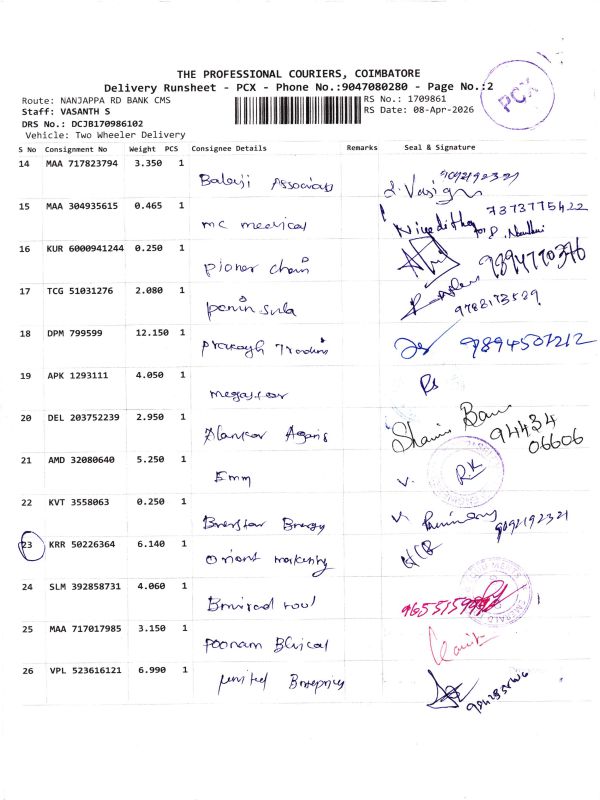 THE PROFESSIONAL COURIERS, COIMBATORE
Delivery Runsheet - PCX - Phone No.:9047080280 - Page No.:2
PCX
Route: NANJAPPA RD BANK CMS
RS No.: 1709861
Staff: VASANTH S
RS Date: 08-Apr-2026
DRS No.: DCJB170986102
Vehicle: Two Wheeler Delivery
S No Consignment No Weight PCS Consignee Details Remarks Seal & Signature
14 MAA 717823794 3.350 1
Balaji Associates
15 MAA 304935615 0.465 1
mc medical Niveditha 7373775422
16 KUR 6000941244 0.250 1
pioner chain 9894770376
17 TCG 51031276 2.080 1
peninsula 9788173589
18 DPM 799599 12.150 1
prakash 9894501212
19 APK 1293111 4.050 1
Rs
20 DEL 203752239 2.950 1
94434
06606
21 AMD 32080640 5.250 1
Emm R.K
22 KVT 3558063 0.250 1
9092192321
23 KRR 50226364 6.140 1
orient marketing
24 SLM 392858731 4.060 1
25 MAA 717017985 3.150 1
poonam
26 VPL 523616121 6.990 1
united